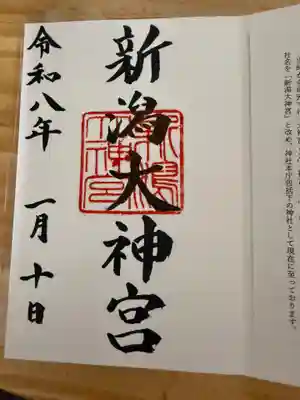 社名を「新潟大神宮」と改め、神社本庁包括下の神社として現在に至っております。
新潟大神宮
令和八年 一月十日